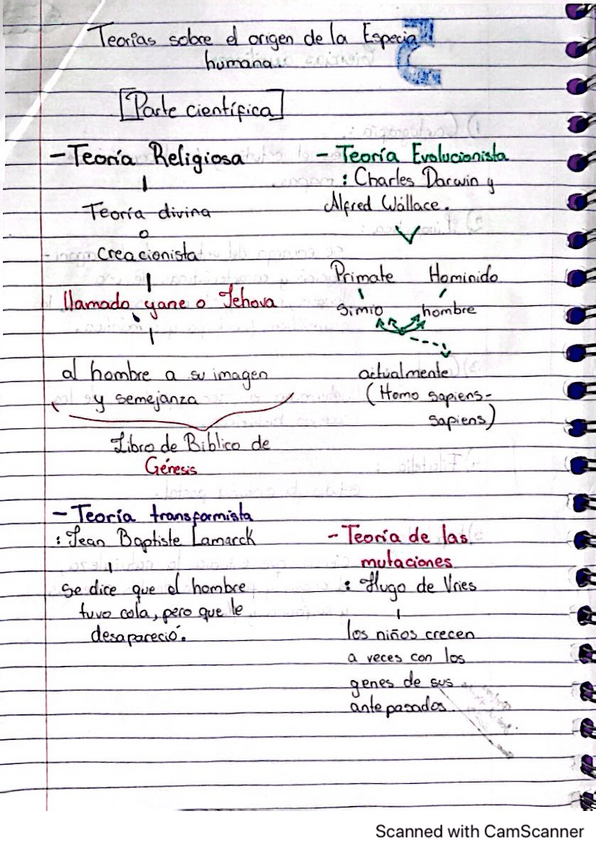 Teorías sobre el origen de la Especie
humana
[Parte científica]
- Teoría Religiosa
Teoría divina
o
Creacionista
llamado yane o Jehova
al hombre a su imagen
y semejanza
Libro de Biblico de
Génesis
- Teoría Evolucionista
: Charles Darwin y
Alfred Wallace.
Primate Hominido
Simio hombre
actualmente
(Homo sapiens-
sapiens)
- Teoría transformista
: Jean Baptiste Lamarck
Se dice que el hombre
tuvo cola, pero que le
desapareció.
- Teoría de las
mutaciones
: Hugo de Vries
los niños crecen
a veces con los
genes de sus
antepasados
Scanned with CamScanner